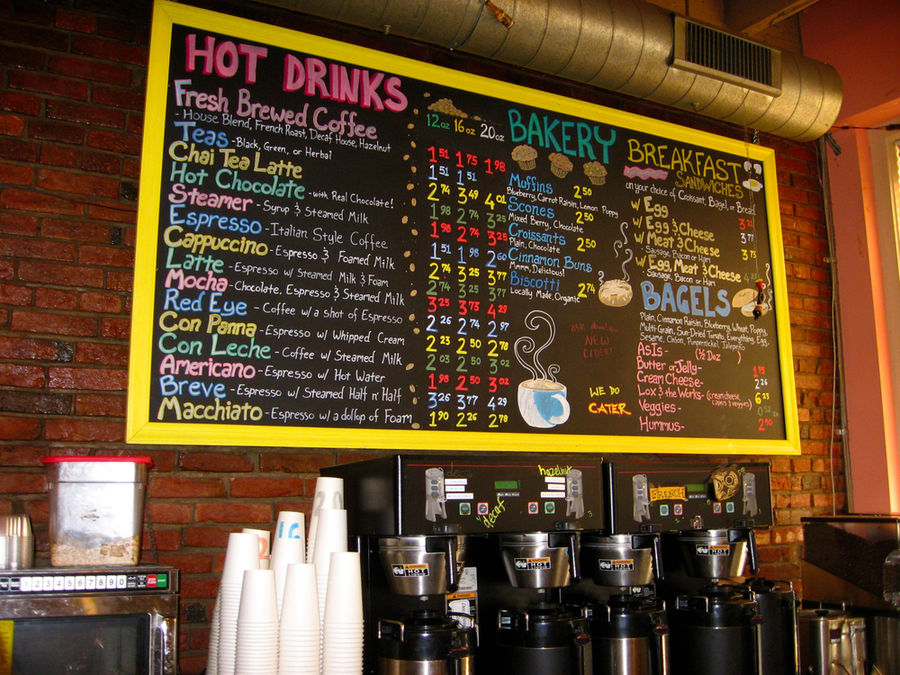 HOT DRINKS
Fresh Brewed Coffee
- House Blend, French Roast, Decaf House, Hazelnut
Teas - Black, Green, or Herbal
Chai Tea Latte
Hot Chocolate - with Real Chocolate!
Steamer - Syrup & Steamed Milk
Espresso - Italian Style Coffee
Cappuccino - Espresso & Foamed Milk
Latte - Espresso w/ Steamed Milk & Foam
Mocha - Chocolate, Espresso & Steamed Milk
Red Eye - Coffee w/ a shot of Espresso
Con Panna - Espresso w/ Whipped Cream
Con Leche - Coffee w/ Steamed Milk
Americano - Espresso w/ Hot Water
Breve - Espresso w/ Steamed Half n' Half
Macchiato - Espresso w/ a dollop of Foam
12oz 16oz 20oz
1.51 1.75 1.98
1.51 1.51
2.74 3.49 4.01
1.98 2.74 3.25
1.98 2.74 3.25
1.51 1.98 2.60
2.74 3.25 3.77
2.74 3.25 3.77
3.25 3.73 4.29
2.26 2.74 2.97
2.23 2.50 2.50
2.03 2.50 3.02
1.98 2.50 3.02
3.26 3.77 4.29
1.90 2.26 2.78
BAKERY
Muffins 2.50
Blueberry, Carrot Raisin, Lemon Poppy
Scones 2.50
Mixed Berry, Chocolate
Croissants 2.50
Plain, Chocolate
Cinnamon Buns
Mmm, Delicious!
Biscotti 2.74
Locally Made, Organic
NEW
CIDER!
WE DO
CATER
BREAKFAST
SANDWICHES
on your choice of Croissant, Bagel, or Bread
w/ Egg
w/ Egg & Cheese 3.77
w/ Meat & Cheese 3.75
Sausage, Bacon or Ham
w/ Egg, Meat & Cheese
Sausage, Bacon or Ham
BAGELS
Plain, Cinnamon Raisin, Blueberry, Wheat, Poppy,
Multi-Grain, Sun-Dried Tomato, Everything, Egg,
Sesame, Onion, Pumpernickel, Jalapeño
As Is - (½ Doz )
Butter or Jelly - 1.75
Cream Cheese - 2.26
Lox & the Works - (cream cheese, capers & veggies) 6.23
Veggies -
Hummus - 2.50
hazelnut
decaf
FRENCH
HOT
HOT
HOT
HOT
16
1 2 3 4 5 6 7 8 9 0